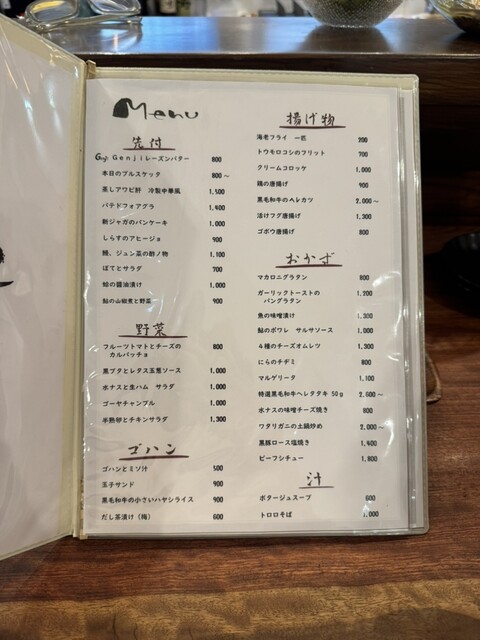 Menu
先付
Genjiレーズンバター 800
本日のブルスケッタ 800～
蒸しアワビ肝 冷製中華風 1,500
パテドフォアグラ 1,400
新ジャガのパンケーキ 1,000
しらすのアヒージョ 900
鱧、ジュン菜の酢ノ物 1,100
ぽてとサラダ 700
蛤の醤油漬け 1,000
鮎の山椒煮と野菜 900
野菜
フルーツトマトとチーズの
カルパッチョ 800
黒ブタとレタス玉葱ソース 1,000
水ナスと生ハム サラダ 1,000
ゴーヤチャンプル 1,000
半熟卵とチキンサラダ 1,300
ゴハン
ゴハンとミソ汁 500
玉子サンド 900
黒毛和牛の小さいハヤシライス 900
だし茶漬け（梅） 600
揚げ物
海老フライ 一匹 200
トウモロコシのフリット 700
クリームコロッケ 1,000
鶏の唐揚げ 900
黒毛和牛のヘレカツ 2,000～
活けフグ唐揚げ 1,300
ゴボウ唐揚げ 800
おかず
マカロニグラタン 800
ガーリックトーストの
パングラタン 1,200
魚の味噌漬け 1,300
鮎のポワレ サルサソース 1,000
4種のチーズオムレツ 1,300
にらのチヂミ 800
マルゲリータ 1,100
特選黒毛和牛ヘレタタキ 50g 2,000～
水ナスの味噌チーズ焼き 800
ワタリガニの土鍋炒め 2,000～
黒豚ロース塩焼き 1,400
ビーフシチュー 1,800
汁
ポタージュスープ 600
トロロそば 1,000